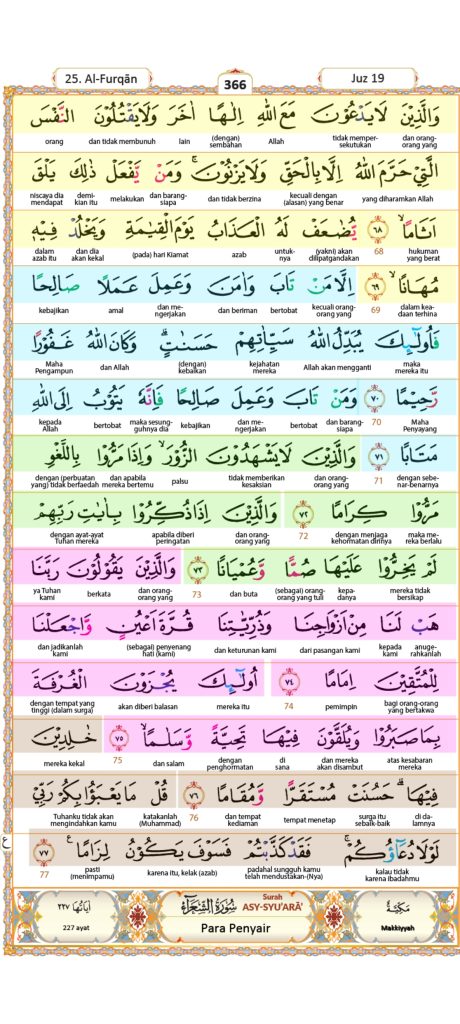 25. Al-Furqān 366 Juz 19
وَالَّذِيْنَ لَا يَدْعُوْنَ مَعَ اللّٰهِ اِلٰهًا اٰخَرَ وَلَا يَقْتُلُوْنَ النَّفْسَ
dan orang-orang yang tidak memper-sekutukan Allah (dengan) sembahan lain dan tidak membunuh orang
الَّتِيْ حَرَّمَ اللّٰهُ اِلَّا بِالْحَقِّ وَلَا يَزْنُوْنَۚ وَمَنْ يَّفْعَلْ ذٰلِكَ يَلْقَ
yang diharamkan Allah kecuali dengan (alasan) yang benar dan tidak berzina dan barang-siapa melakukan demi-kian itu niscaya dia mendapat
اَثَامًا ۙ ٦٨ يُّضٰعَفْ لَهُ الْعَذَابُ يَوْمَ الْقِيٰمَةِ وَيَخْلُدْ فِيْهٖ
hukuman yang berat 68 (yakni) akan dilipatgandakan untuk-nya azab (pada) hari Kiamat dan dia akan kekal dalam azab itu
مُهَانًا ۙ ٦٩ اِلَّا مَنْ تَابَ وَاٰمَنَ وَعَمِلَ عَمَلًا صَالِحًا
dalam kea-daan terhina 69 kecuali orang-orang yang bertobat dan beriman dan me-ngerjakan amal kebajikan
فَاُولٰۤىِٕكَ يُبَدِّلُ اللّٰهُ سَيِّاٰتِهِمْ حَسَنٰتٍۗ وَكَانَ اللّٰهُ غَفُوْرًا
maka mereka itu Allah akan mengganti kejahatan mereka (dengan) kebaikan dan Allah Maha Pengampun
رَّحِيْمًا ٧٠ وَمَنْ تَابَ وَعَمِلَ صَالِحًا فَاِنَّهٗ يَتُوْبُ اِلَى اللّٰهِ
Maha Penyayang 70 dan barang-siapa bertobat dan me-ngerjakan kebajikan maka sesung-guhnya dia bertobat kepada Allah
مَتَابًا ٧١ وَالَّذِيْنَ لَا يَشْهَدُوْنَ الزُّوْرَۙ وَاِذَا مَرُّوْا بِاللَّغْوِ
dengan sebe-nar-benarnya 71 dan orang-orang yang tidak memberikan kesaksian palsu dan apabila mereka bertemu (dengan) (perbuatan yang) tidak berfaedah
مَرُّوْا كِرَامًا ٧٢ وَالَّذِيْنَ اِذَا ذُكِّرُوْا بِاٰيٰتِ رَبِّهِمْ
maka me-reka berlalu dengan menjaga kehormatan dirinya 72 dan orang-orang yang apabila diberi peringatan dengan ayat-ayat Tuhan mereka
لَمْ يَخِرُّوْا عَلَيْهَا صُمًّا وَّعُمْيَانًا ٧٣ وَالَّذِيْنَ يَقُوْلُوْنَ رَبَّنَا
mereka tidak bersikap kepa-danya (sebagai) orang-orang yang tuli dan buta 73 dan orang-orang yang berkata ya Tuhan kami
هَبْ لَنَا مِنْ اَزْوَاجِنَا وَذُرِّيّٰتِنَا قُرَّةَ اَعْيُنٍ وَّاجْعَلْنَا
anuge-rahkanlah kepada kami dari pasangan kami dan keturunan kami (sebagai) penyenang hati (kami) dan jadikanlah kami
لِلْمُتَّقِيْنَ اِمَامًا ٧٤ اُولٰۤىِٕكَ يُجْزَوْنَ الْغُرْفَةَ
bagi orang-orang yang bertakwa pemimpin 74 mereka itu akan diberi balasan dengan tempat yang tinggi (dalam surga)
بِمَا صَبَرُوْا وَيُلَقَّوْنَ فِيْهَا تَحِيَّةً وَّسَلٰمًا ۙ ٧٥ خٰلِدِيْنَ
atas kesabaran mereka dan mereka akan disambut di sana dengan penghormatan dan salam 75 mereka kekal
فِيْهَاۗ حَسُنَتْ مُسْتَقَرًّا وَّمُقَامًا ٧٦ قُلْ مَا يَعْبَؤُا بِكُمْ رَبِّيْ
di da-lamnya surga itu sebaik-baik tempat menetap dan tempat kediaman 76 katakanlah (Muhammad) Tuhanku tidak akan mengindahkan kamu
لَوْلَا دُعَاۤؤُكُمْۚ فَقَدْ كَذَّبْتُمْ فَسَوْفَ يَكُوْنُ لِزَامًا ࣖ ٧٧
kalau tidak karena ibadahmu padahal sungguh kamu telah mendustakan-(Nya) karena itu, kelak (azab) pasti (menimpamu) 77
ع
مَكِّيَّةٌ سُوْرَةُ الشُّعَرَاۤءِ Surah ASY-SYU'ARĀ' اٰيَاتُهَا ٢٢٧
Makkiyyah Para Penyair 227 ayat